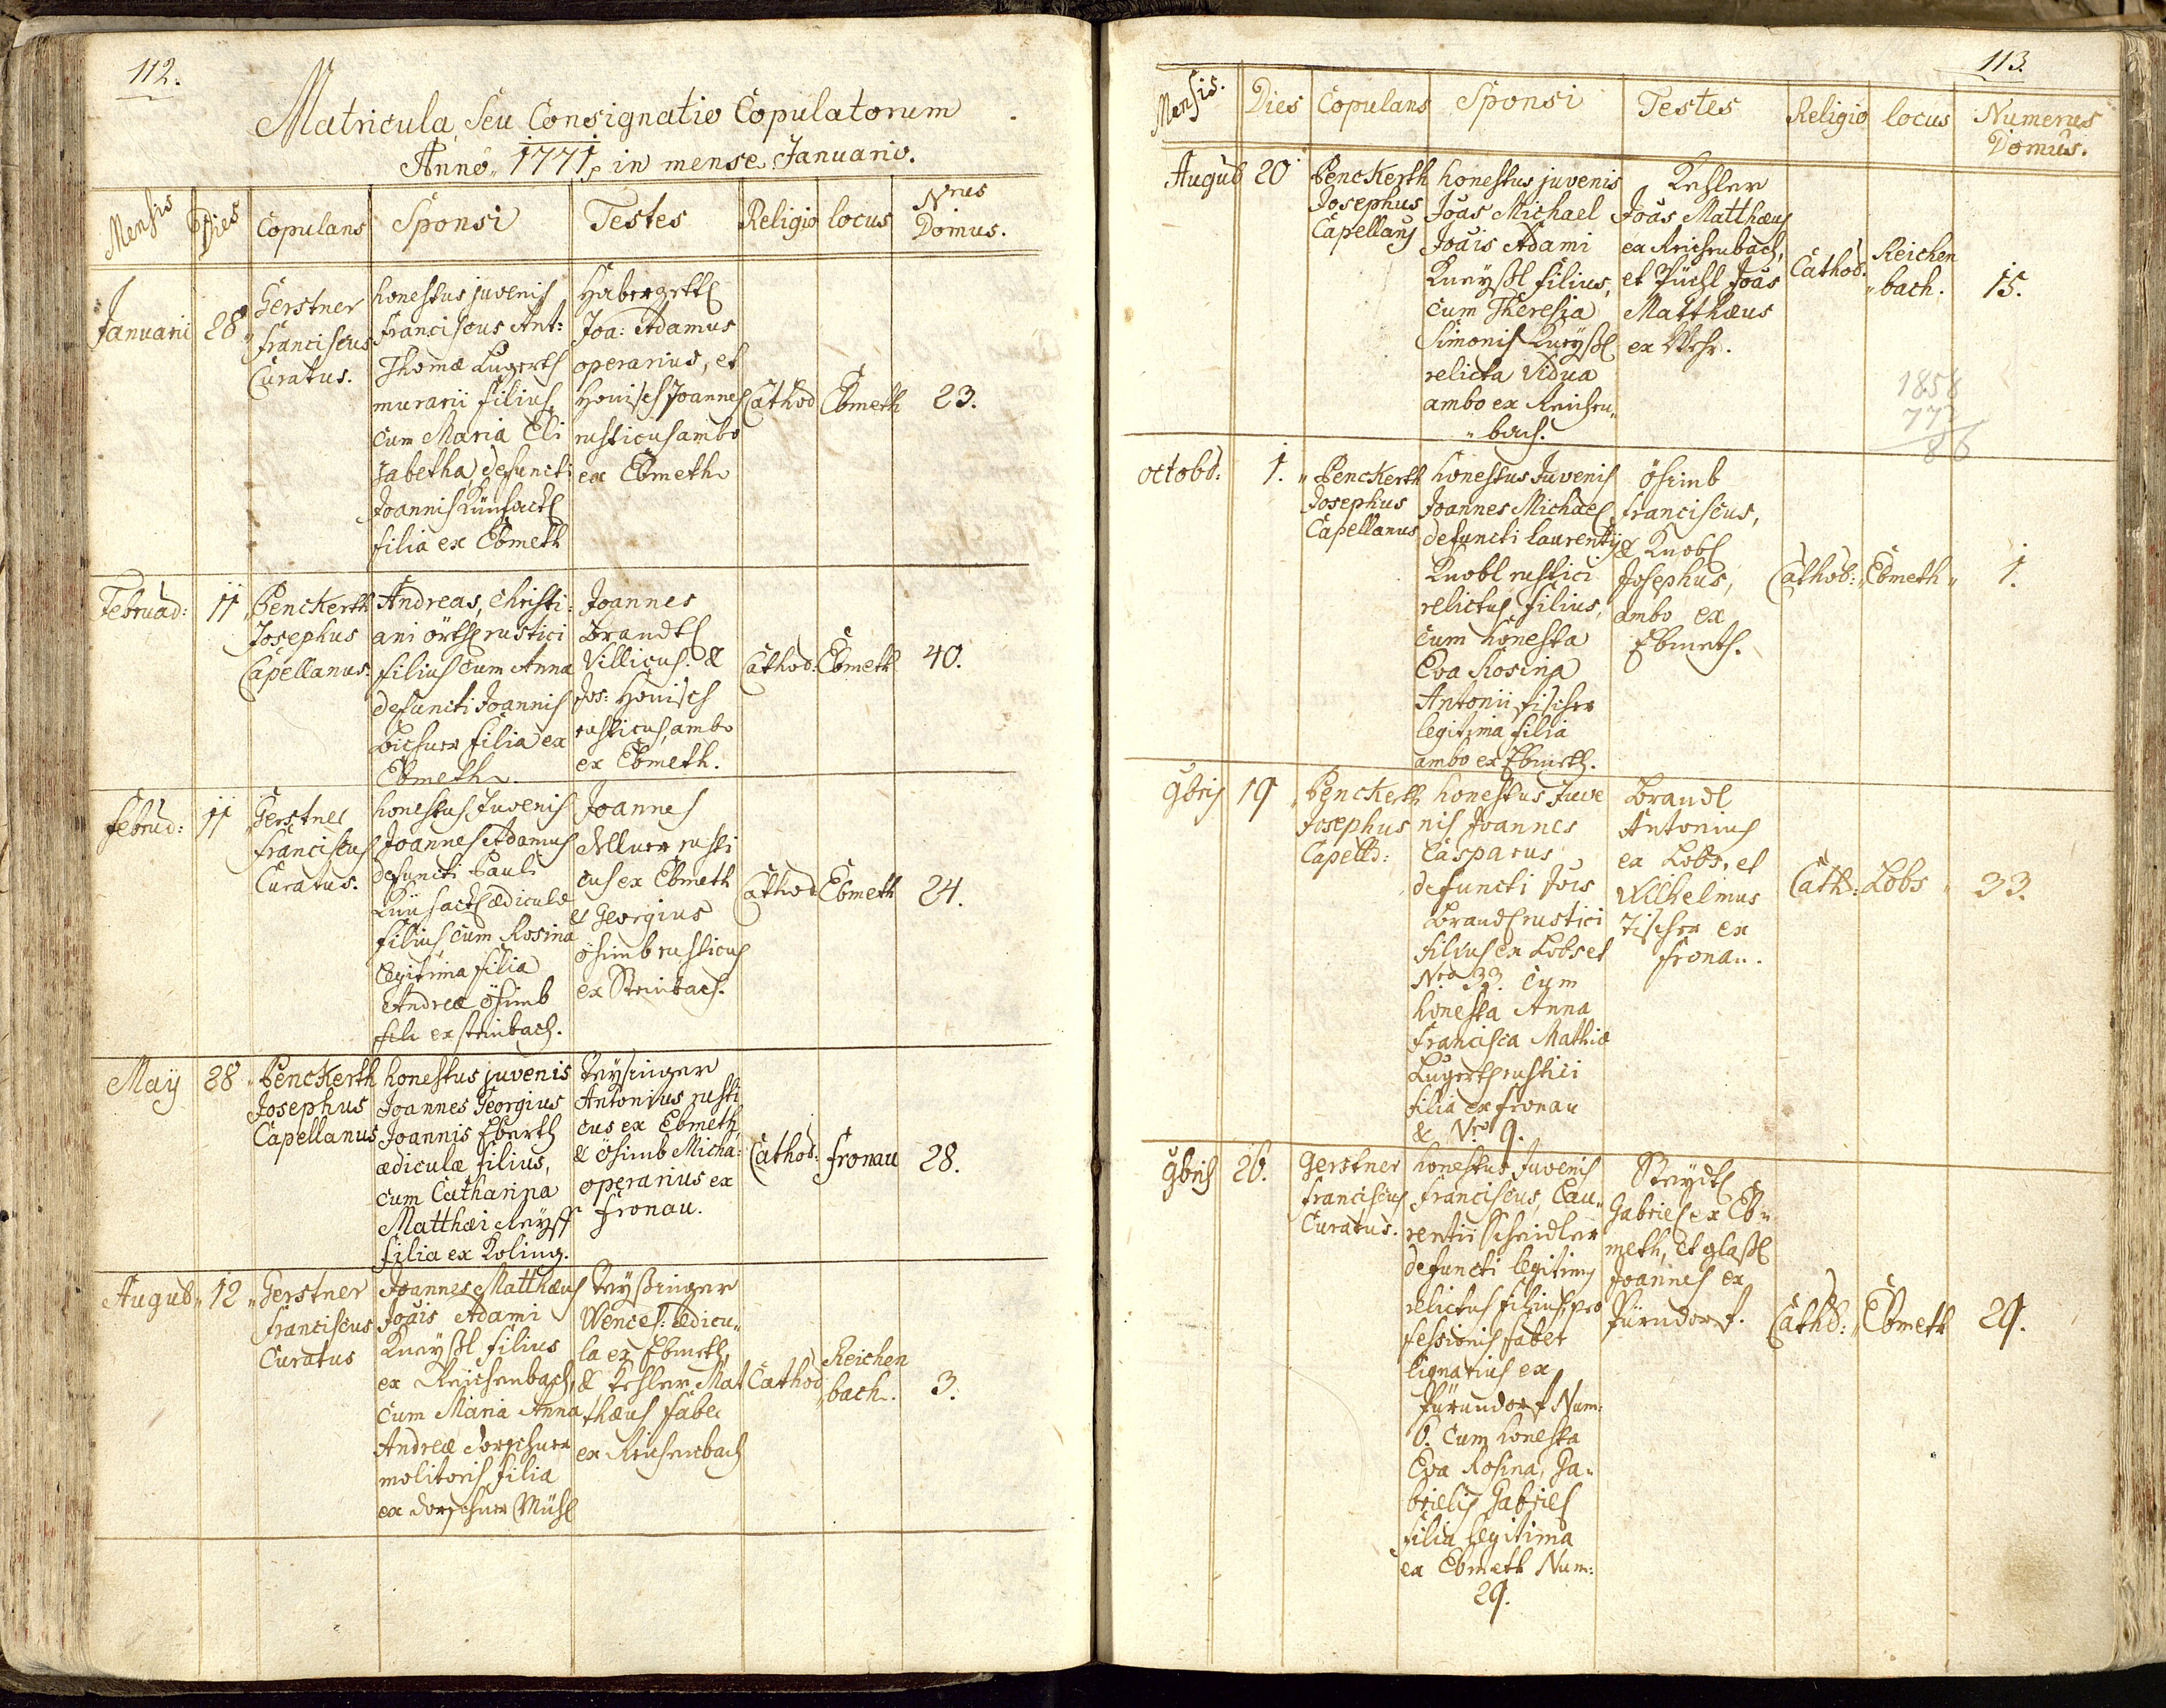 112.
Matricula Seu Consignatio Copulatorum
Anno 1771, in mense Januario.
Mensis Dies Copulans Sponsi Testes Religio locus Nrus Domus.
Januarii 28
Gerstner
Franciscus
Curatus.
honestus juvenis
Franciscus Ant:
Thomæ Lugerth
murarii filius,
cum Maria Eli
sabetha, defuncti
Joannis
filia ex Ebmeth
Joa: Adamus
operarius, et
Honisch Joannes
rusticus ambo
ex Ebmeth
Cathod Ebmeth 23.
Februad: 11
Penckerth
Josephus
Capellanus.
Andreas, Christi:
ani örtl rustici
filius cum Anna
defuncti Joannis
filia ex
Ebmeth.
Joannes
Brandtl
Villicus. &
Jos: Honisch
rusticus, ambo
ex Ebmeth.
Cathod: Ebmeth 40.
Februd: 11
Gerstner
Franciscus
Curatus.
honestus Juvenis
Joannes Adamus
defuncti Pauli
ædiculæ
filius cum Rosina
legitima filia
Andreæ ösimb
ex Steinbach.
Joannes
rusti
cus ex Ebmeth
et Georgius
ösimb rusticus
ex Steinbach.
Cathod Ebmeth 24.
Maij 28
Penckerth
Josephus
Capellanus
honestus juvenis
Joannes Georgius
Joannis Eberth
ædiculæ filius,
cum Catharina
Matthæi
filia ex Koling.
Teysinger
Antonius rusti
cus ex Ebmeth
& ösimb Micha:
operarius ex
Fronau.
Cathod: Fronau 28.
Augud 12
Gerstner
Franciscus
Curatus
Joannes Matthæus
Joais Adami
Kneyßl filius
ex Reichenbach,
cum Maria Anna
Andreæ Dorschner
molitoris filia
ex Dorschner Mühl
Teyßinger
Wencel: ædicu
la ex Ebmeth,
& Kehler Mat
thæus faber
ex Reichenbach
Cathod Reichen
bach. 3.
113.
Mensis. Dies Copulans Sponsi Testes Religio locus Numerus Domus.
Augud 20
Penckerth
Josephus
Capellanus
honestus juvenis
Joas Michael
Joais Adami
Kneyßl filius,
cum Theresia
Simonis Kneyßl
relicta Vidua
ambo ex Reichen
bach.
Kehler
Joas Matthæus
ex Reichenbach,
et Püchl Joas
Matthæus
ex Wehr.
Cathod: Reichen
bach. 15.
1858
772
86
Octobd: 1.
Penckerth
Josephus
Capellanus
honestus Juvenis
Joannes Michael
defuncti Laurentij
Knobl rustici
relictus filius,
cum honesta
Eva Rosina
Antonii Fischer
legitima filia
ambo ex Ebmeth.
ösimb
Franciscus,
& Knobl
Josephus,
ambo ex
Ebmeth.
Cathod: Ebmeth 1.
9bris 19
Penckerth
Josephus
Capelld:
honestus Juve
nis Joannes
Casparus
defuncti Jois
Brandl rustici
filius ex Lobs et
Nro 33. cum
honesta Anna
Francisca Mathiæ
Lugerth rustici
filia ex Fronau
& Nro 9.
Brandl
Antonius
ex Lobs, et
Wilhelmus
Fischer ex
Fronau.
Cath: Lobs 33.
9bris 26.
Gerstner
Franciscus
Curatus.
honestus Juvenis
Franciscus, Lau
rentii Scheidler
defuncti legitimus
relictus filius, pro
fessionis faber
lignarius ex
Pürndorf Num:
6. cum honesta
Eva Rosina, Ga
brielis Gabriel
filia legitima
ex Ebmeth Num:
29.
Steydl
Gabriel ex Eb
meth, et Glaßl
Joannes ex
Pürndorf.
Cathd: Ebmeth 29.